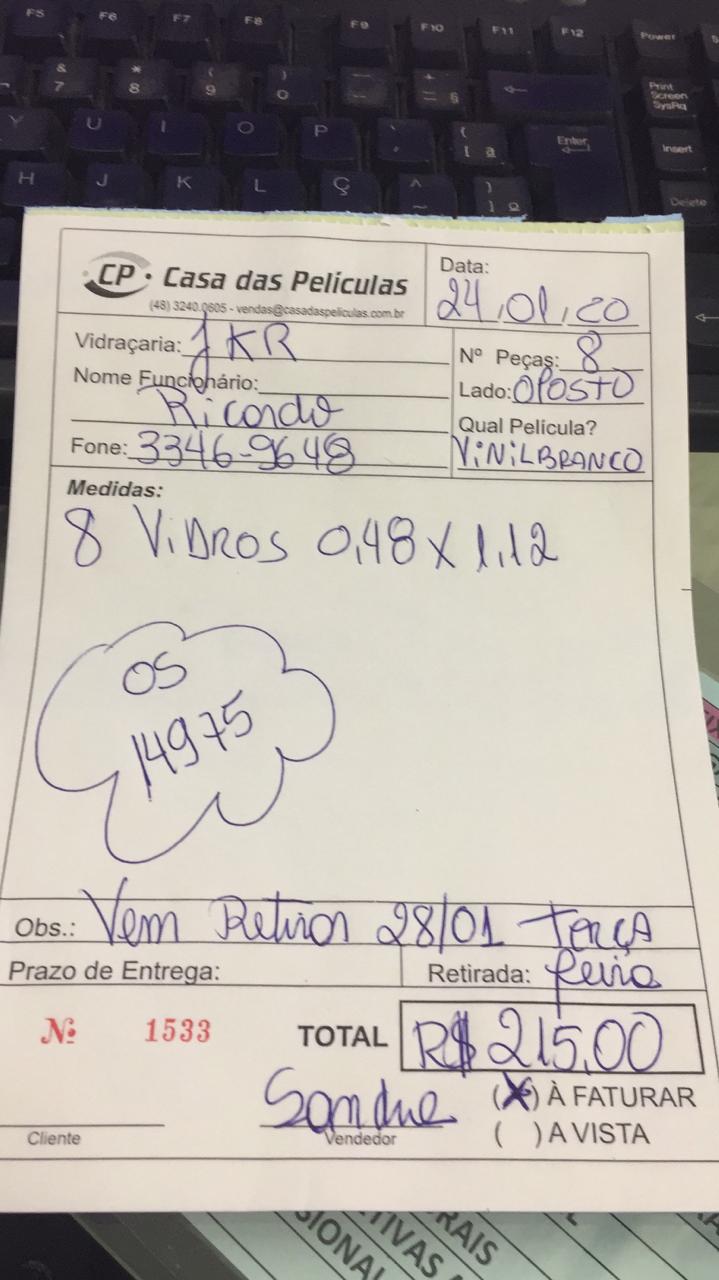 F5 F6 F7 F8 F9 F10 F11 F12 Power
& 7 * 8 ( 9 ) 0 + = § Print Screen SysRq
Y U I O P Enter Insert
H J K L Ç ^ ~ Delete
CP · Casa das Películas
(48) 3240.0605 - vendas@casadaspeliculas.com.br
Data:
24,01,20
Vidraçaria: JKR
Nome Funcionário:
Ricardo
Fone: 3346-9648
Nº Peças: 8
Lado: OPOSTO
Qual Película?
ViNiL BRANCO
Medidas:
8 ViDROS 0,48 X 1,12
OS
14975
Obs.: Vem Retirar 28/01 Terça
Prazo de Entrega:
Retirada: feira
Nº 1533
TOTAL R$ 215,00
(X) À FATURAR
( ) A VISTA
Cliente
Vendedor
RAIS
TIVAS
SIONAL